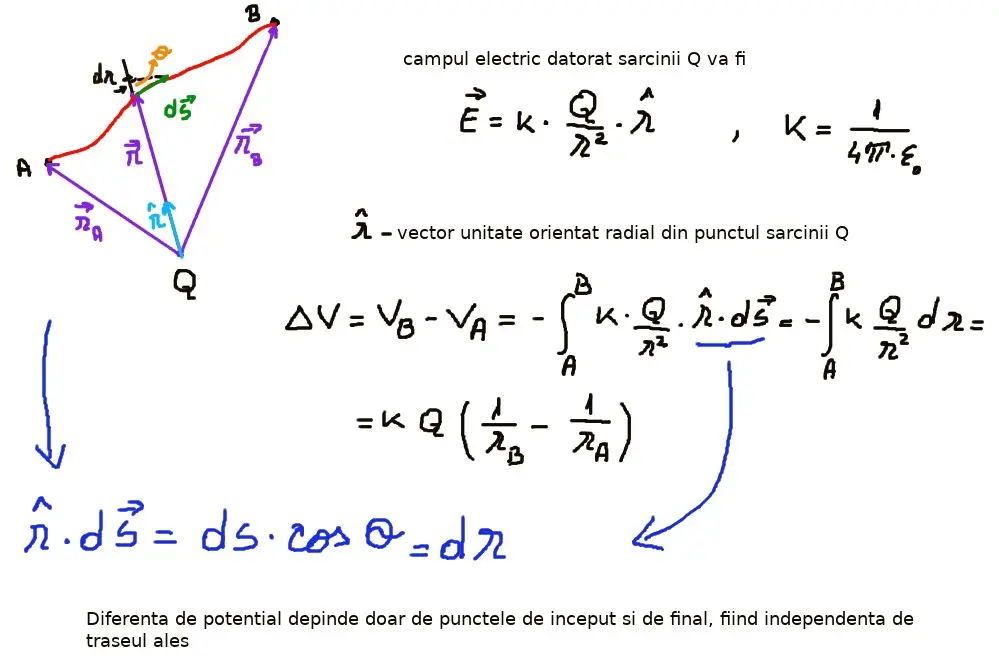 B
θ
dr
ds⃗
A
r⃗
r⃗_B
r⃗_A
r̂
Q
campul electric datorat sarcinii Q va fi
E⃗ = k · Q/r² · r̂ , K = 1/(4π·ε₀)
r̂ – vector unitate orientat radial din punctul sarcinii Q
ΔV = V_B - V_A = - ∫_A^B k · Q/r² · r̂ · ds⃗ = - ∫_A^B k Q/r² dr =
= k Q (1/r_B - 1/r_A)
r̂ · ds⃗ = ds · cos θ = dr
Diferenta de potential depinde doar de punctele de inceput si de final, fiind independenta de
traseul ales